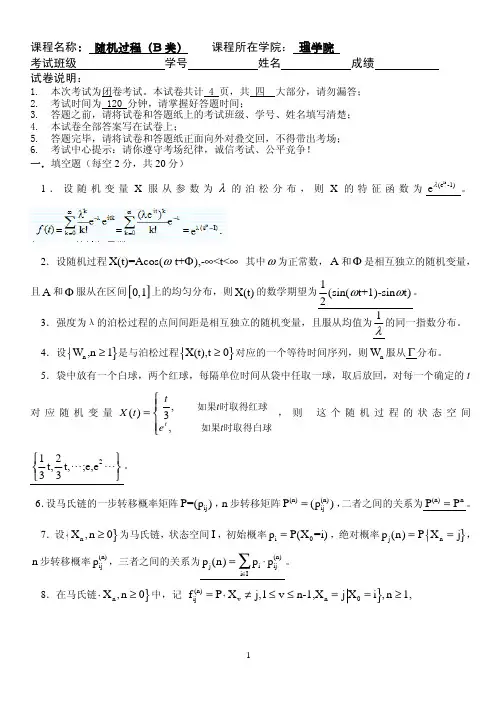 课程名称： 随机过程（B类） 课程所在学院： 理学院
考试班级 学号 姓名 成绩
试卷说明：
1. 本次考试为闭卷考试。本试卷共计 4 页，共 四 大部分，请勿漏答；
2. 考试时间为 120 分钟，请掌握好答题时间；
3. 答题之前，请将试卷和答题纸上的考试班级、学号、姓名填写清楚；
4. 本试卷全部答案写在试卷上；
5. 答题完毕，请将试卷和答题纸正面向外对叠交回，不得带出考场；
6. 考试中心提示：请你遵守考场纪律，诚信考试、公平竞争！
一．填空题（每空2分，共20分）
1．设随机变量X服从参数为λ的泊松分布，则X的特征函数为 e^{λ(e^{it}-1)} 。
f(t)=∑_{k=0}^{∞} (λ^k/k!) e^{-λ} e^{itk} = ∑_{k=0}^{∞} ((λe^{it})^k/k!) e^{-λ} = e^{λ(e^{it}-1)}.
2．设随机过程X(t)=Acos(ω t+Φ),-∞<t<∞ 其中ω为正常数，A和Φ是相互独立的随机变量，
且A和Φ服从在区间[0,1]上的均匀分布，则X(t)的数学期望为 1/2(sin(ωt+1)-sinωt)。
3．强度为λ的泊松过程的点间间距是相互独立的随机变量，且服从均值为 1/λ 的同一指数分布。
4．设{W_n,n≥1}是与泊松过程{X(t),t≥0}对应的一个等待时间序列，则W_n服从Γ分布。
5．袋中放有一个白球，两个红球，每隔单位时间从袋中任取一球，取后放回，对每一个确定的t
对应随机变量 X(t)={ t/3, 如果t时取得红球 ; e^t, 如果t时取得白球 ，则 这个随机过程的状态空间
{1/3 t,2/3 t,⋯;e,e^2 ⋯}。
6.设马氏链的一步转移概率矩阵P=(p_{ij})，n步转移矩阵P^{(n)}=(p_{ij}^{(n)})，二者之间的关系为 P^{(n)}=P^n 。
7．设{X_n,n≥0}为马氏链，状态空间I，初始概率p_i=P(X_0=i)，绝对概率p_j(n)=P{X_n=j}，
n步转移概率p_{ij}^{(n)}，三者之间的关系为 p_j(n)=∑_{i∈I} p_i·p_{ij}^{(n)} 。
8．在马氏链{X_n,n≥0}中，记 f_{ij}^{(n)}=P{X_v≠j,1≤v≤n-1,X_n=j|X_0=i},n≥1,
1